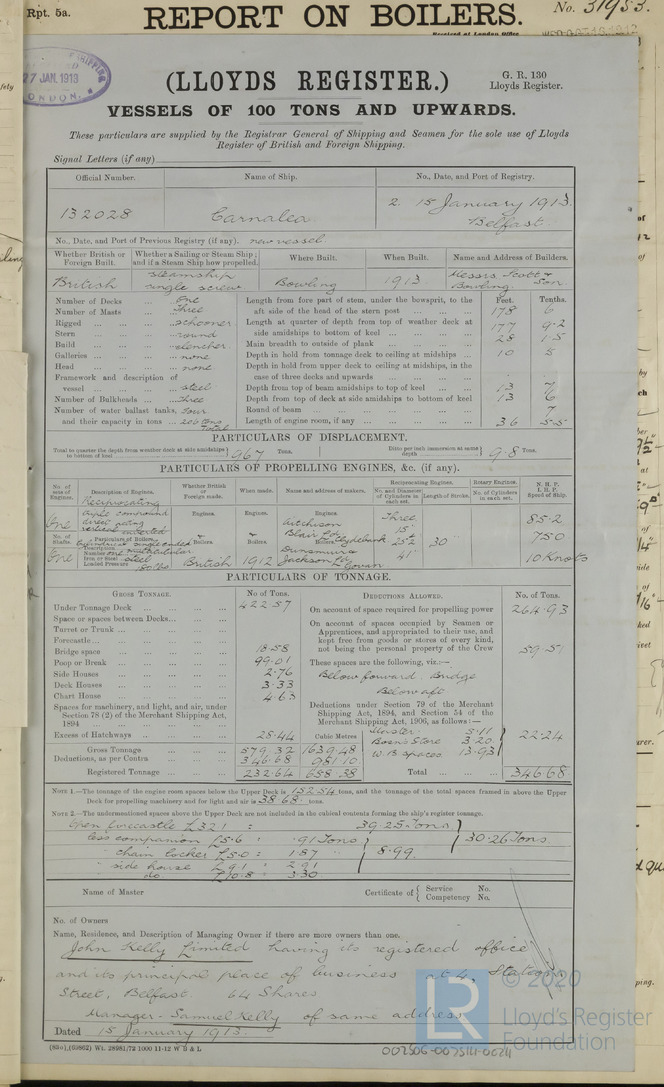 Rpt. 5a.
REPORT ON BOILERS.
No. 31953.
Received at London Office
27 JAN. 1913
LONDON.
(LLOYDS REGISTER.)
G. R. 130
Lloyds Register.
VESSELS OF 100 TONS AND UPWARDS.
These particulars are supplied by the Registrar General of Shipping and Seamen for the sole use of Lloyds
Register of British and Foreign Shipping.
Signal Letters (if any)
Official Number. Name of Ship. No., Date, and Port of Registry.
132028 Carnalea 2. 15 January 1913.
Belfast.
No., Date, and Port of Previous Registry (if any). new vessel.
Whether British or Foreign Built. Whether a Sailing or Steam Ship; and if a Steam Ship how propelled. Where Built. When Built. Name and Address of Builders.
British steamship single screw Bowling 1913 Messrs. Scott & Son Bowling.
Number of Decks ... One
Number of Masts ... Three
Rigged ... schooner
Stern ... round
Build ... clencher
Galleries ... none
Head ... none
Framework and description of
vessel ... steel
Number of Bulkheads ... Three
Number of water ballast tanks, four
and their capacity in tons ... 206 tons total
Feet. Tenths.
Length from fore part of stem, under the bowsprit, to the
aft side of the head of the stern post ... 178 6
Length at quarter of depth from top of weather deck at
side amidships to bottom of keel ... 177 9.2
Main breadth to outside of plank ... 28 1.5
Depth in hold from tonnage deck to ceiling at midships ... 10 5
Depth in hold from upper deck to ceiling at midships, in the
case of three decks and upwards ...
Depth from top of beam amidships to top of keel ... 13 7
Depth from top of deck at side amidships to bottom of keel 13 6
Round of beam ... 7
Length of engine room, if any ... 36 5.5
PARTICULARS OF DISPLACEMENT.
Total to quarter the depth from weather deck at side amidships to bottom of keel 967 Tons. Ditto per inch immersion at same depth 9.8 Tons.
PARTICULARS OF PROPELLING ENGINES, &c. (if any).
No. of sets of Engines. Description of Engines. Whether British or Foreign made. When made. Name and address of makers. Reciprocating Engines. No. and Diameter of Cylinders in each set. Length of Stroke. Rotary Engines. No. of Cylinders in each set. N. H. P. I. H. P. Speed of Ship.
One Reciprocating triple compound direct acting vertical inverted
Engines. Engines. Engines. Aitchison Blair Ld Clydebank
Three 15" 25½ 41" 30" 85.2 750 10 Knots
No. of Shafts. Particulars of Boilers. Description Number Iron or Steel Loaded Pressure
One Cylindrical single ended one multitubular steel 180 lbs
Boilers British Boilers 1912 Boilers Dunsmuir & Jackson Ld Govan
PARTICULARS OF TONNAGE.
GROSS TONNAGE. No. of Tons. DEDUCTIONS ALLOWED. No. of Tons.
Under Tonnage Deck ... 422.57
Space or spaces between Decks...
Turret or Trunk ...
Forecastle...
Bridge space ... 18.58
Poop or Break ... 99.01
Side Houses ... 2.76
Deck Houses ... 3.33
Chart House ... 4.63
Spaces for machinery, and light, and air, under
Section 78 (2) of the Merchant Shipping Act,
1894 ...
Excess of Hatchways ... 28.44 Cubic Metres
Gross Tonnage ... 579.32 1639.48
Deductions, as per Contra ... 346.68 981.10
Registered Tonnage ... 232.64 658.38
On account of space required for propelling power 264.93
On account of spaces occupied by Seamen or
Apprentices, and appropriated to their use, and
kept free from goods or stores of every kind,
not being the personal property of the Crew 59.51
These spaces are the following, viz:—
Below forward. Bridge
Below aft
Deductions under Section 79 of the Merchant
Shipping Act, 1894, and Section 54 of the
Merchant Shipping Act, 1906, as follows:—
Master 5.11
Bosn's Store 3.20
W.B Spaces 13.93
22.24
Total ... 346.68
NOTE 1.—The tonnage of the engine room spaces below the Upper Deck is 152.54 tons, and the tonnage of the total spaces framed in above the Upper
Deck for propelling machinery and for light and air is 38.68 tons
NOTE 2.—The undermentioned spaces above the Upper Deck are not included in the cubical contents forming the ship's register tonnage.
Open forecastle L32: : 39.25 Tons
less companion L5.6 : .91 Tons
" chain locker L5.0 : 1.87
" side house L9.1 : 2.91
" do. L10.8 : 3.30
8.99
30.26 Tons
Name of Master Certificate of { Service No.
Competency No.
No. of Owners
Name, Residence, and Description of Managing Owner if there are more owners than one.
John Kelly Limited having its registered office
and its principal place of business at 4, Station
Street, Belfast. 64 Shares
Manager - Samuel Kelly of same address
Dated 15 January 1913.
(83o),(03862) Wt. 28981/72 1000 11-12 W B & L
002506-002514-0024
LR
© 2020
Lloyd's Register
Foundation